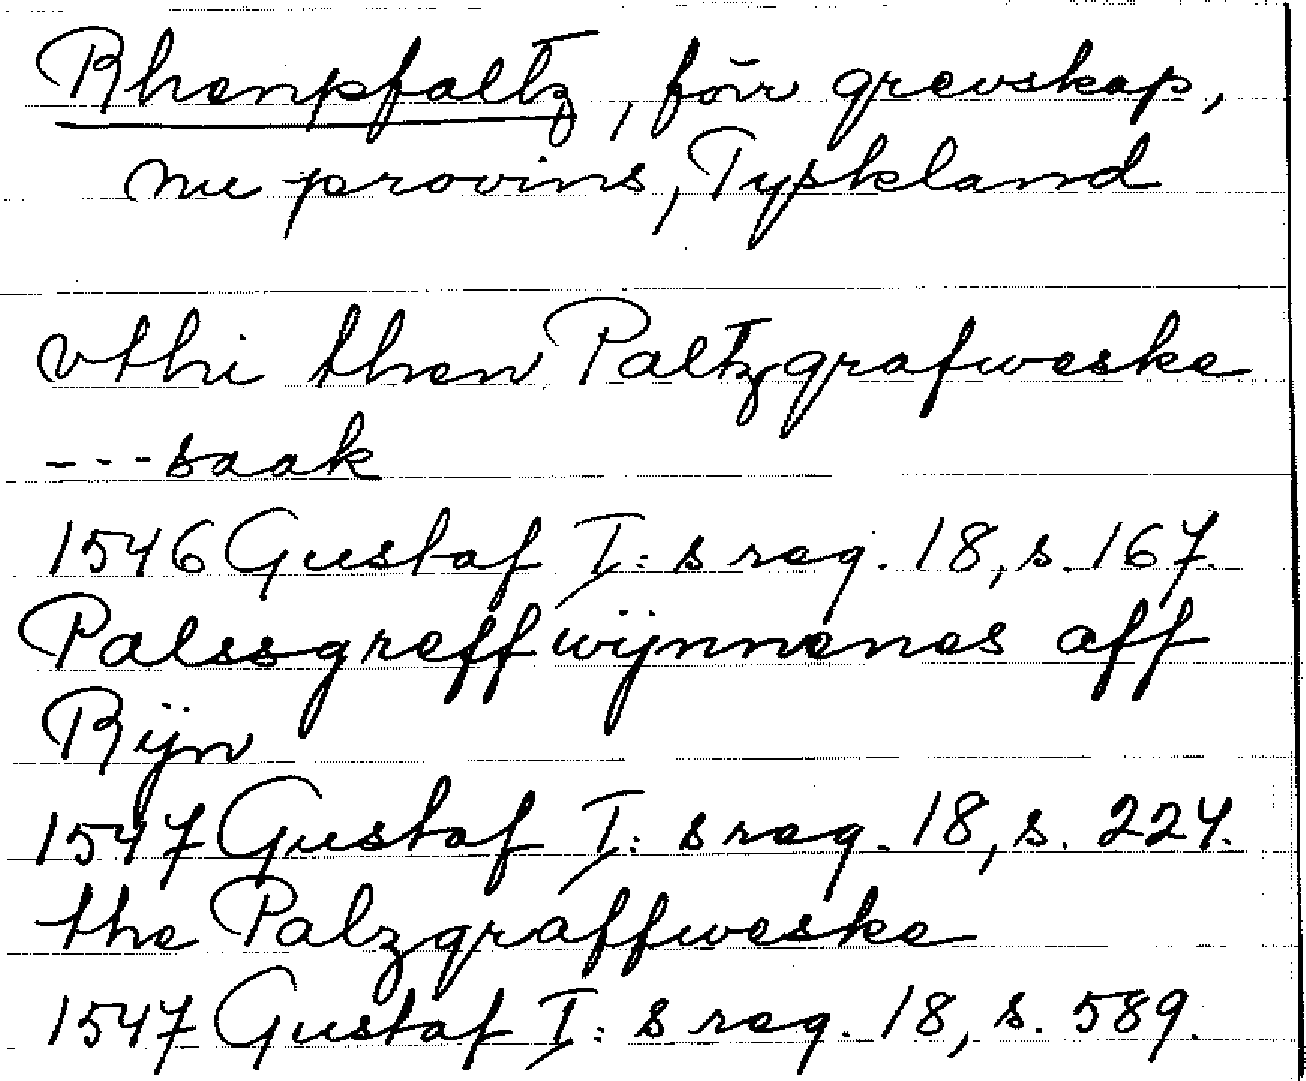 Rhenpfaltz, förr grevskap,
nu provins, Tyskland
vthi then Paltzgrafweske
---saak
1546 Gustaf I:s reg. 18, s. 167.
Palssgreffwijnnenes aff
Rijn
1547 Gustaf I:s reg. 18, s. 224.
the Palzgraffweske
1547 Gustaf I:s reg. 18, s. 589.